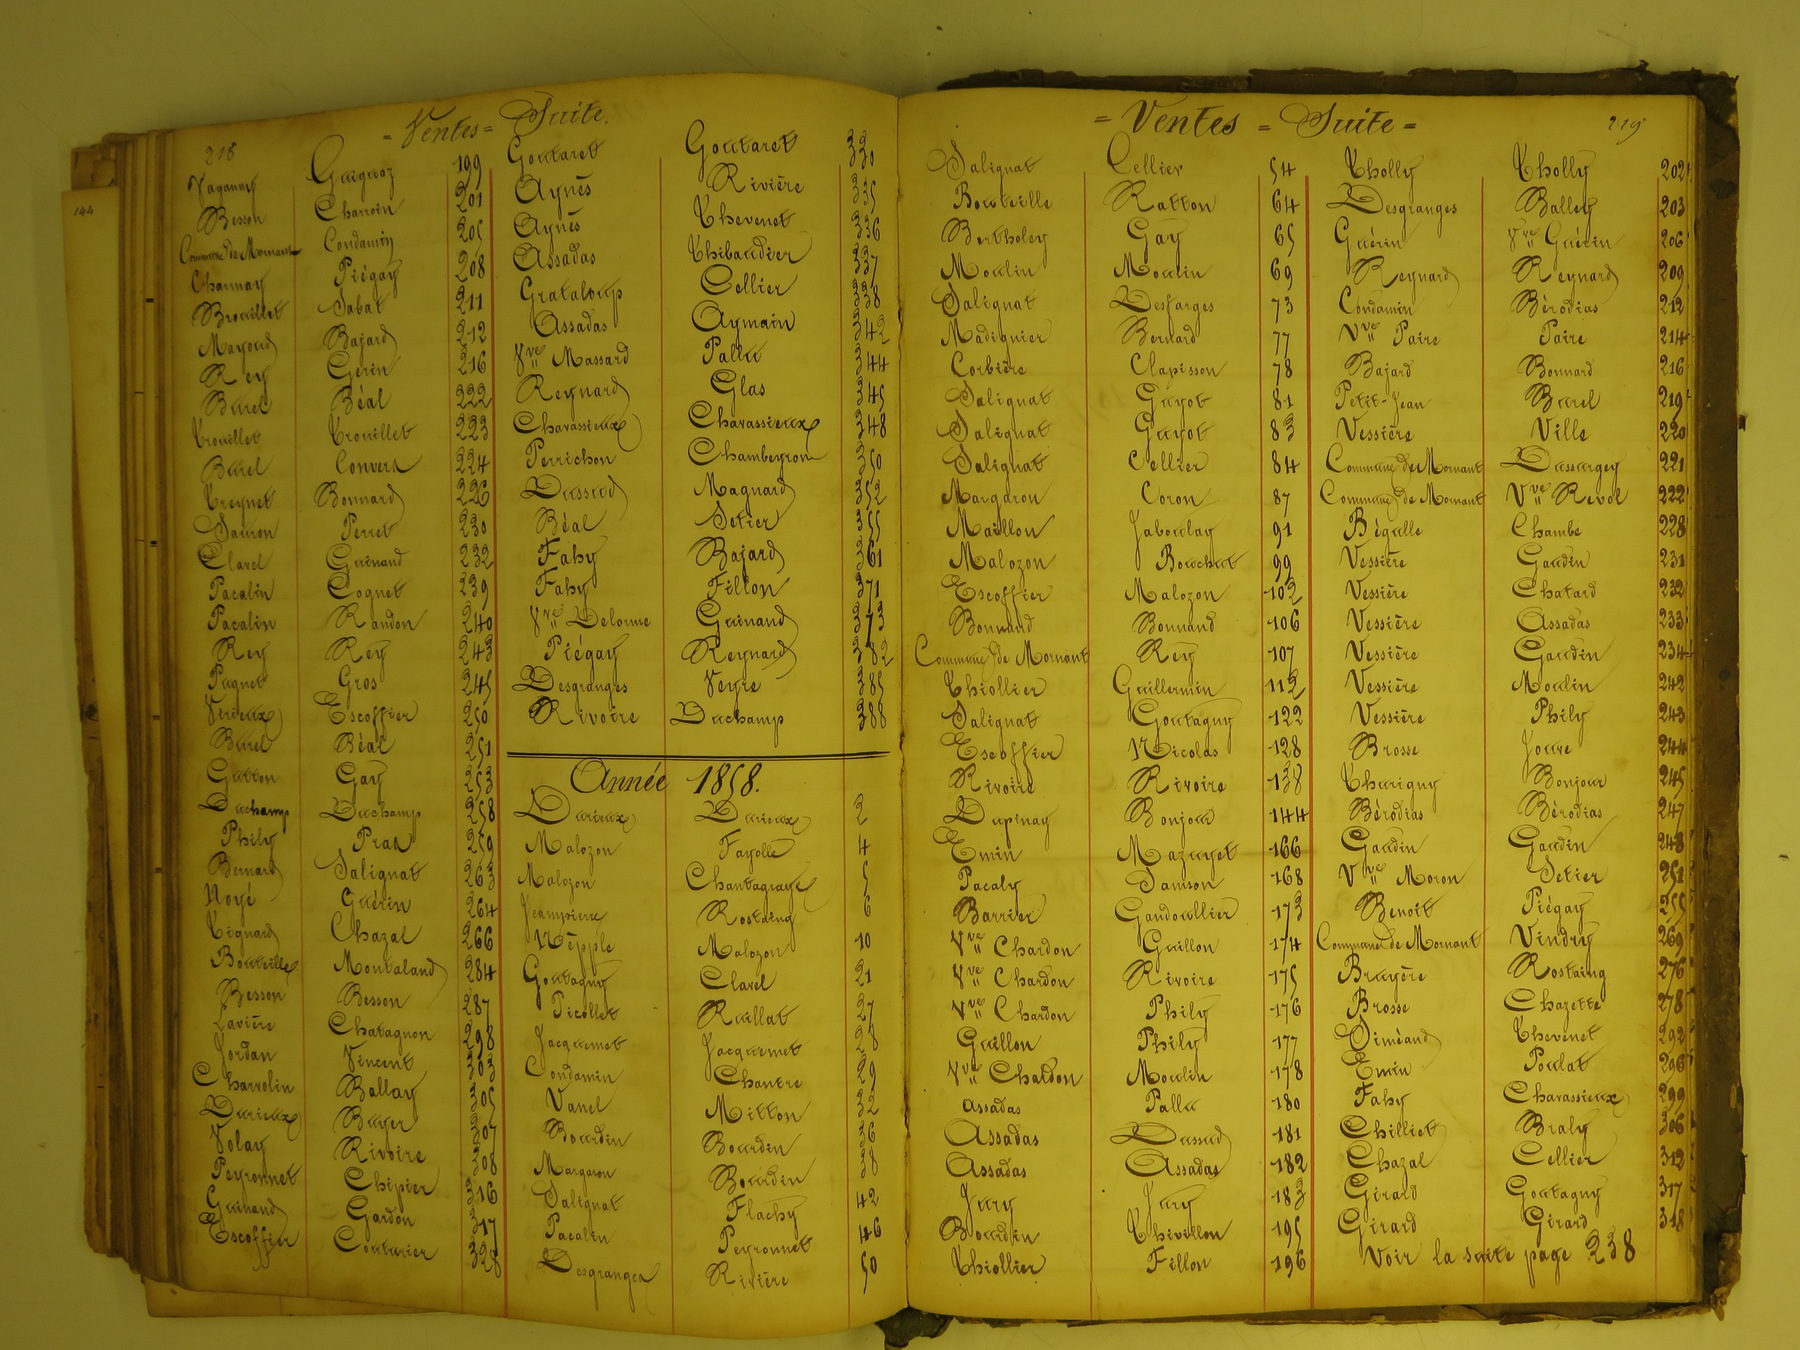 = Ventes = Suite.
218
Vaganay Guiguoz 199
Besson Charroin 201
Commune de Mornant Condamin 205
Charmay Piégay 208
Brouillet Sabat 211
Mayoud Bajard 212
Rey Gerin 216
Burel Béal 222
Trouillet Trouillet 223
Burel Convers 224
Treynet Bonnard 226
Sauron Perret 230
Clavel Guinand 232
Pacalin Cognet 239
Pacalin Randon 240
Rey Rey 243
Paquet Gros 245
Verieux Escoffier 250
Burel Béal 251
Gutton Gay 253
Duchamp Duchamp 258
Phily Pras 259
Bernard Salignat 263
Noyé Guérin 264
Vignard Chazal 266
Bouteille Montaland 284
Besson Besson 287
Lavière Chatagnon 298
Jordan Vincent 303
Charvolin Ballay 305
Durieux Buyer 307
Volay Rivoire 308
Peyronnet Chipier 316
Guinand Gardon 317
Escoffier Couturier 328
Goutaret Goutaret 330
Aynès Rivière 335
Aynès Thevenet 336
Assadas Thibaudier 337
Grataloup Cellier 338
Assadas Aymain 342
Vve Massard Pallu 344
Reynard Glas 345
Chavassieux Chavassieux 348
Perrichon Chambeyron 350
Dussud Magnard 352
Béal Setier 355
Fahy Bajard 361
Fahy Fillon 371
Vve Delorme Guinand 373
Piégay Reynard 382
Desgranges Veyre 385
Rivoire Duchamp 388
Année 1858.
Durieux Durieux 2
Malozon Fayolle 4
Malozon Chantagraye 5
Jeampierre Rostaing 6
Népple Malozon 10
Goutagny Clavel 21
Picollet Ruillat 27
Jacquemet Jacquemet 28
Condamin Chantre 29
Vanel Mitton 32
Bourdin Bourdin 36
Margaron Bourdin 38
Salignat Flachy 42
Pacalin Peyronnet 46
Desgranges Rivière 50
= Ventes = Suite =
219
Salignat Cellier 54
Bouteille Ratton 64
Bertholey Gay 65
Moulin Moulin 69
Salignat Desfarges 73
Madignier Bernard 77
Corbière Clapisson 78
Salignat Guyot 81
Salignat Guyot 83
Salignat Cellier 84
Margaron Coron 87
Maillon Jaboulay 91
Malozon Bouchut 99
Escoffier Malozon 102
Bonnard Bonnand 106
Commune de Mornant Rey 107
Thiollier Guillermin 112
Salignat Goutagny 122
Escoffier Nicolas 128
Rivoire Rivoire 138
Dupinay Bonjour 144
Emin Mazuyet 166
Pacaly Samson 168
Barrier Gandoullier 173
Vve Chardon Guillon 174
Vve Chardon Rivoire 175
Vve Chardon Phily 176
Guillon Phily 177
Vve Chardon Moulin 178
Assadas Pallu 180
Assadas Dussud 181
Assadas Assadas 182
Jury Jury 183
Bourdin Thivillon 195
Thiollier Fillon 196
Tholly Tholly 202
Desgranges Balley 203
Guérin Vve Guérin 206
Reynard Reynard 209
Condamin Bérodias 212
Vve Paire Paire 214
Bajard Bonnard 216
Petit-Jean Burel 219
Vessière Ville 220
Commune de Mornant Dussurgey 221
Commune de Mornant Vve Revol 222
Béguelle Chambe 228
Vessière Gaudin 231
Vessière Chatard 232
Vessière Assadas 233
Vessière Gaudin 234
Vessière Moulin 242
Vessière Phily 243
Brosse Jouve 244
Thurigny Bonjour 245
Bérodias Bérodias 247
Gaudin Gaudin 248
Vve Moron Setier 251
Benoit Piégay 255
Commune de Mornant Vindry 269
Bruyère Rostaing 276
Brosse Chazette 278
Siméand Thevenet 292
Emin Poulat 296
Fahy Chavassieux 299
Chilliet Braly 306
Chazal Cellier 312
Girard Goutagny 317
Girard Girard 318
Voir la suite page 238
144